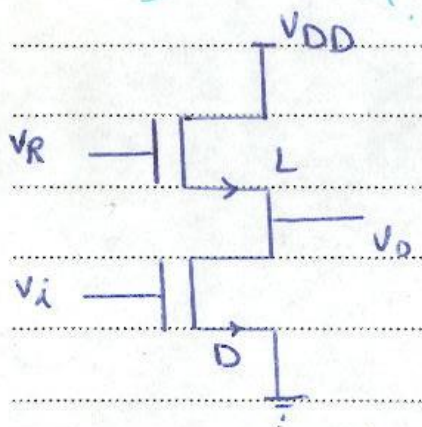 VDD
VR
L
Vo
Vi
D